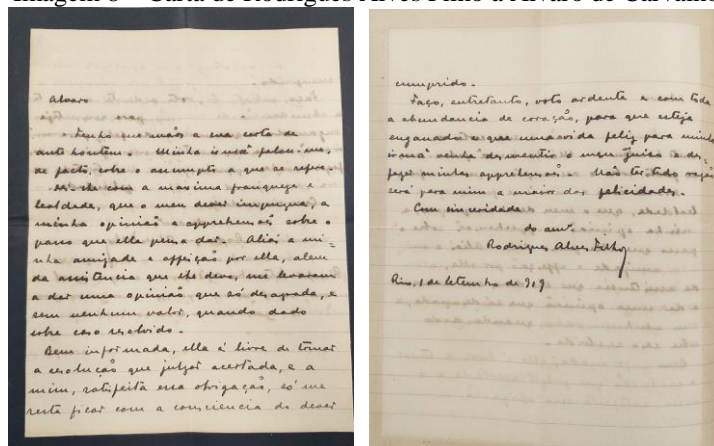 Imagem 6 – Carta de Rodrigues Alves Filho a Alvaro de Carvalho
Alvaro
Tenho que mãos a sua carta de
ante hontem. Minha irmã falou-me,
de facto, sobre o assumpto a que se refere.
Dei-lhe com a maxima franqueza e
lealdade, que o meu dever impunha, a
minha opinião e apprehensões sobre o
passo que ella pensa dar. Aliás a mi-
nha amizade e affeição por ella, alem
da assistencia que lhe devo, me levaram
a dar uma opinião que só desagrada, e
sem nenhum valor, quando dado
sobre caso resolvido.
Bem informada, ella é livre de tomar
a resolução que julgar acertada, e a
mim, satisfeita essa obrigação, só me
resta ficar com a consciencia do dever
cumprido.
Faço, entretanto, voto ardente e com toda
a abundancia de coração, para que esteja
enganado e que uma vida feliz para minha
irmã venha desmentir o meu juizo e des-
fazer minhas apprehensões. Não ter tido razão
será para mim a maior das felicidades.
Com sinceridade
do amº.
Rodrigues Alves Filho
Rio, 1 de Setembro de 919